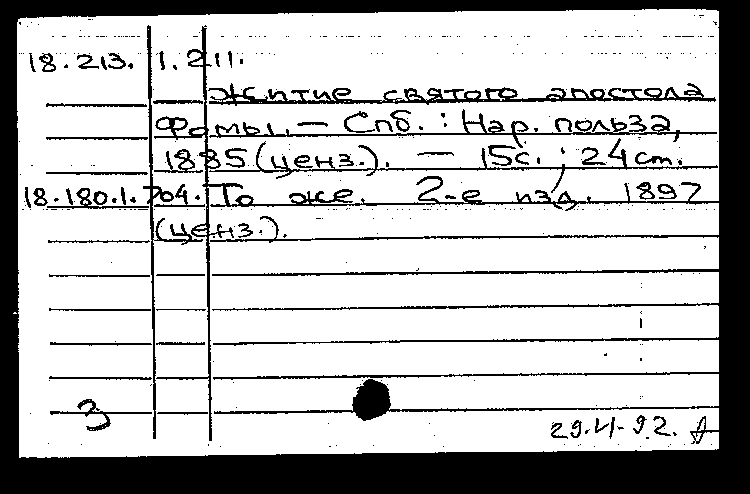 18.213. 1.211.
Житие святого апостола
Фомы. — Спб. : Нар. польза,
1885 (ценз.). — 15с. ; 24 cm.
18.180.1.704. То же. 2-е изд. 1897
(ценз.).
3
29.VI-92.